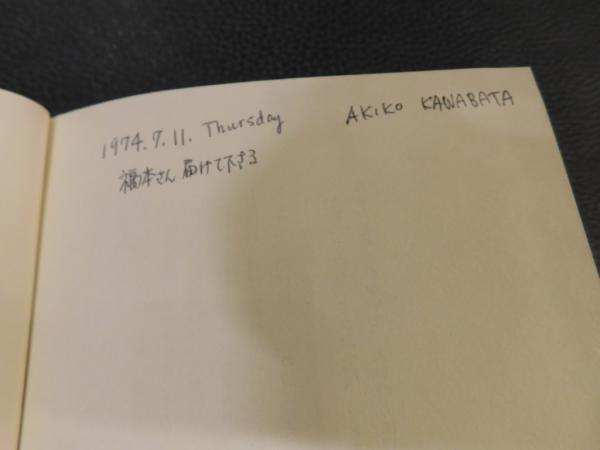 1974.7.11. Thursday AKIKO KAWABATA
福本さん 届けて下さる